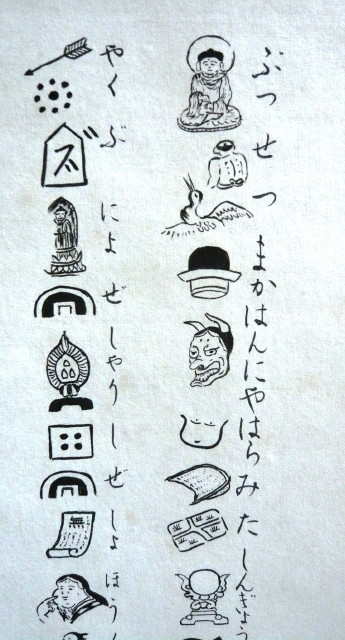 ぶっせつまかはんにやはらみたしんぎょう
やくぶによぜしゃりしぜしょほう